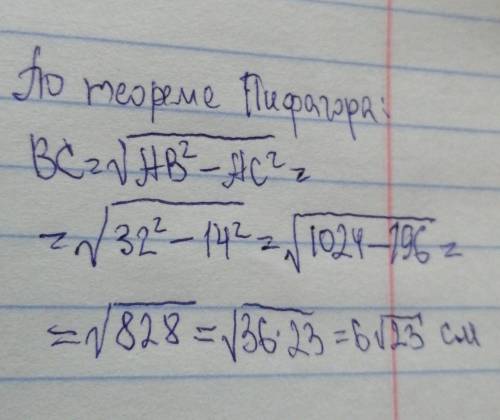 По теореме Пифагора:
BC=√AB²-AC²=
=√32²-14²=√1024-196=
=√828=√36·23=6√23 см